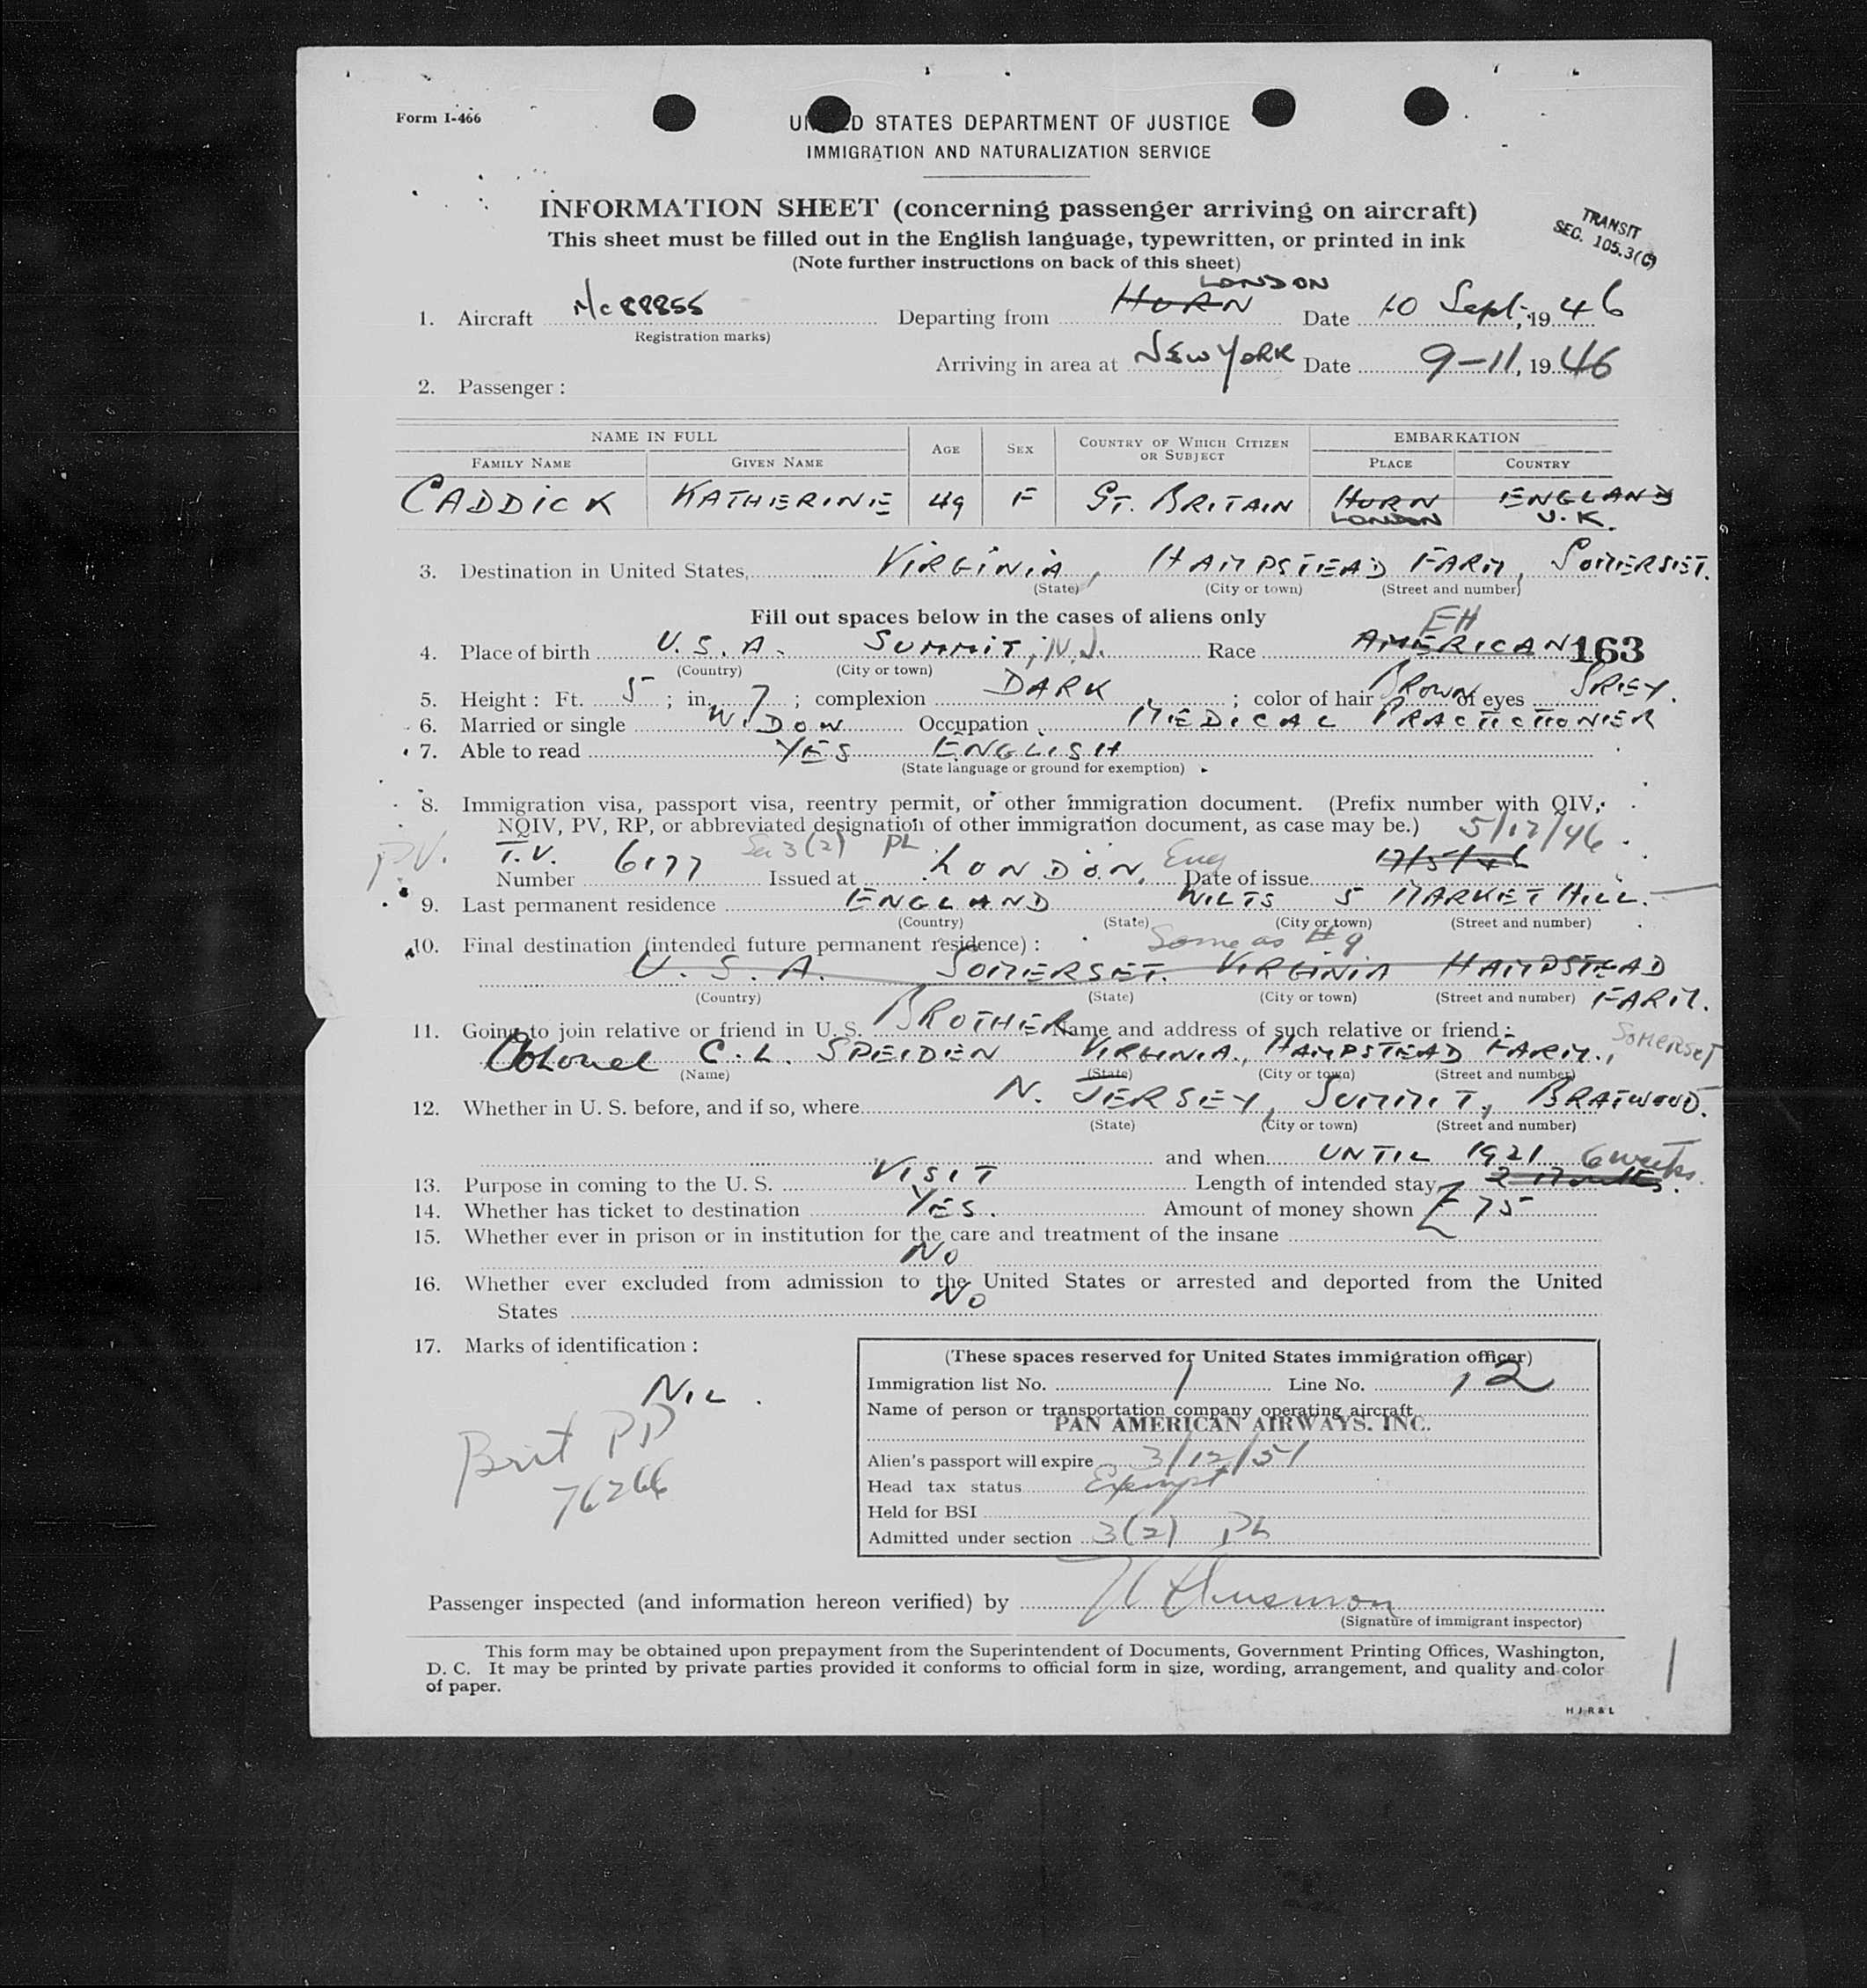 Form I-466
UNITED STATES DEPARTMENT OF JUSTICE
IMMIGRATION AND NATURALIZATION SERVICE
INFORMATION SHEET (concerning passenger arriving on aircraft)
This sheet must be filled out in the English language, typewritten, or printed in ink
(Note further instructions on back of this sheet)
TRANSIT
SEC. 105.3(C)
LONDON
1. Aircraft Nc 88855 Departing from HURN Date 10 Sept., 1946
(Registration marks)
Arriving in area at NEW YORK Date 9-11, 1946
2. Passenger:
NAME IN FULL AGE SEX COUNTRY OF WHICH CITIZEN OR SUBJECT EMBARKATION
FAMILY NAME GIVEN NAME PLACE COUNTRY
CADDICK KATHERINE 49 F GT. BRITAIN HURN ENGLAND
LONDON U.K.
3. Destination in United States, VIRGINIA, HAMPSTEAD FARM, SOMERSET.
(State) (City or town) (Street and number)
Fill out spaces below in the cases of aliens only
EH
4. Place of birth U.S.A. SUMMIT, N.J. Race AMERICAN 163
(Country) (City or town)
5. Height: Ft. 5; in. 7; complexion DARK; color of hair BROWN of eyes GREY.
6. Married or single WIDOW Occupation MEDICAL PRACTICTIONER
7. Able to read YES ENGLISH
(State language or ground for exemption)
8. Immigration visa, passport visa, reentry permit, or other immigration document. (Prefix number with QIV,
NQIV, PV, RP, or abbreviated designation of other immigration document, as case may be.) 5/17/46
P.V. T.V. Sec 3(2) PL
Number 6177 Issued at LONDON, Eng Date of issue 17/5/46
9. Last permanent residence ENGLAND WILTS 5 MARKET HILL.
(Country) (State) (City or town) (Street and number)
10. Final destination (intended future permanent residence): Same as #9
U.S.A. SOMERSET. VIRGINIA HAMPSTEAD
(Country) (State) (City or town) (Street and number) FARM.
11. Going to join relative or friend in U. S. BROTHER Name and address of such relative or friend:
Colonel C.L. SPEIDEN VIRGINIA, HAMPSTEAD FARM., SOMERSET
(Name) (State) (City or town) (Street and number)
12. Whether in U. S. before, and if so, where N. JERSEY, SUMMIT, BRATWOOD.
(State) (City or town) (Street and number)
and when UNTIL 1921 6 weeks
13. Purpose in coming to the U. S. VISIT Length of intended stay 2 Months.
14. Whether has ticket to destination YES. Amount of money shown £75
15. Whether ever in prison or in institution for the care and treatment of the insane
No
16. Whether ever excluded from admission to the United States or arrested and deported from the United
States No
17. Marks of identification:
NIL.
Brit PP
76266
(These spaces reserved for United States immigration officer)
Immigration list No. 1 Line No. 12
Name of person or transportation company operating aircraft
PAN AMERICAN AIRWAYS, INC.
Alien's passport will expire 3/12/51
Head tax status Exempt
Held for BSI
Admitted under section 3(2) PL
Passenger inspected (and information hereon verified) by
(Signature of immigrant inspector)
This form may be obtained upon prepayment from the Superintendent of Documents, Government Printing Offices, Washington,
D. C. It may be printed by private parties provided it conforms to official form in size, wording, arrangement, and quality and color
of paper.
H J R & L